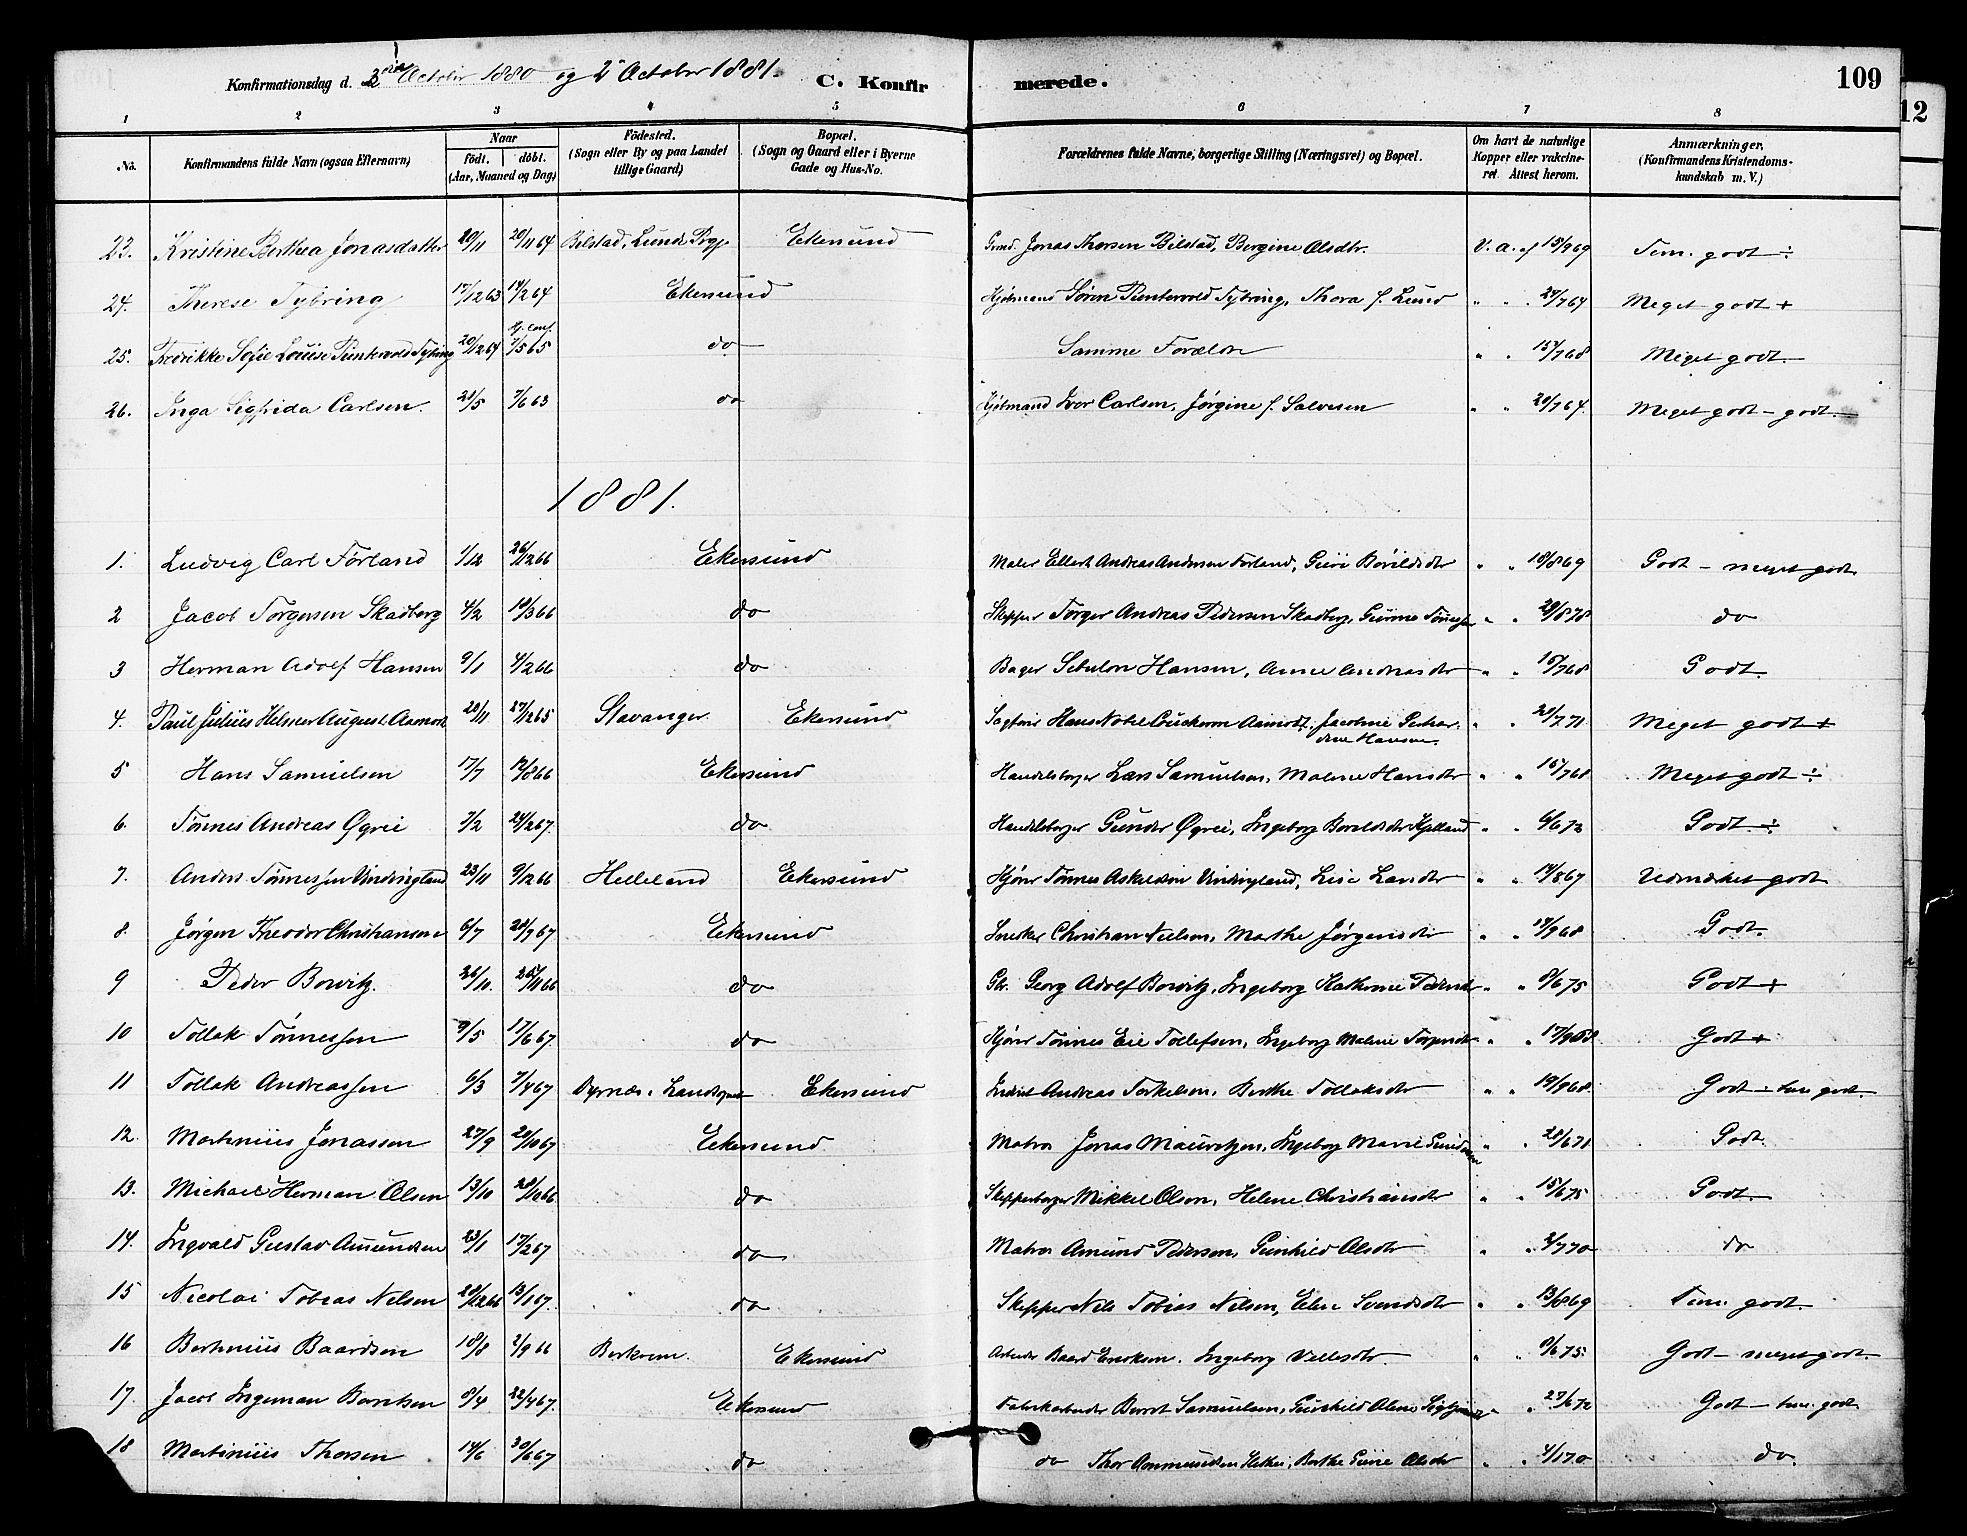 Konfirmationsdag d. 3die October 1880 og 2den October 1881. C. Konfirmerede. 109
12
1 2 3 4 5 6 7 8
No. Konfirmandens fulde Navn (ogsaa Efternavn) Naar født. døbt. (Aar, Maaned og Dag) Födested. (Sogn eller By og paa Landet tillige Gaard) Bopæl. (Sogn og Gaard eller i Byerne Gade og Hus-No. Forældrenes fulde Navne, borgerlige Stilling (Næringsvei) og Bopæl. Om havt de naturlige Kopper eller vakcineret. Attest herom. Anmærkninger, (Konfirmandens Kristendomskundskab m. V.)
23. Kristine Berthea Jonasdatter 20/11 20/11 64 Bilstad, Lunds Prgj Ekersund Grmd. Jonas Thorsen Bilstad, Bergine Olsdtr. V. a. af 15/9 69 Tem. godt ÷
24. Therese Tybring 17/12 63 14/2 64 Ekersund Hjælmand Sören Puntervold Tybring, Thora f. Lund " " 24/7 64 Meget godt +
25. Fredrikke Sofie Louise Puntervold Tybring 20/12 64 7/5 65 do Samme Forældre " " 15/7 68 Meget godt.
26. Inga Sigfrida Carlsen. 21/5 7/6 63 do Iver Carlsen, Jørgine f. Salvesen " " 20/7 64. Meget godt - godt.
1881.
1. Ludvig Carl Førland 1/12 26/12 66 Ekersund Maler Ellert Andreas Andersen Førland, Guri Børildsdtr " " 18/8 69 Godt - meget godt.
2 Jacob Torgersen Skadberg 4/2 18/3 66 do Skipper Torger Andreas Pedersen Skadberg, Gurine " " 29/8 78 do
3 Herman Adolf Hansen 9/1 4/2 66 do Bager Sebulon Hansen, Anne Andreasdtr " " 15/7 68 Godt.
4. Paul Julius Helmer August Aamodt 20/11 27/12 65 Stavanger Ekersund Hans Nobel Aamodt. Jacobine Hansen. " " 20/7 71. Meget godt +
5 Hans Samuelsen 17/7 12/8 66 Ekersund Handelsborger Lars Samuelsen, Malene Hansdtr " " 15/7 68. Meget godt ÷
6. Tønnes Andreas Øgrei 7/2 24/2 67. do Handelsborger Gunder Øgrei, Ingeborg Boreldsdtr Hylland " " 6/6 72 Godt ÷
7. Anders Tønnessen Vindingland 23/11 9/12 66 Helleland Ekersund Tønnes Askeldsen Vindingland, Lise Larsdtr " " 14/8 67 Udmærket godt
8. Jørgen Theodor Christiansen 6/7 28/7 67 Ekersund Snedker Christian Nielsen, Marthe Jørgensdtr " " 14/9 68 Godt.
9 Peder Bowitz. 26/10. 25/11 66 do Georg Adolf Bowitz, Ingeborg Kathrine Pedersdtr " " 8/6 75 Godt +
10 Tollak Tønnessen 9/5 17/6 67. do Tønnes Eie Tollefsen, Ingeborg Malene " " 17/9 68 Godt +
11 Tollak Andreassen 6/3 7/4 67 Ekersund Andreas Torkelsen, Berthe Tollaksdtr " " 19/8 68. Godt - tem godt.
12. Martinius Jonassen 27/9 20/10 67 Ekersund Matros Jonas Mauritzen, Ingeborg Marie " " 28/6 71 Godt.
13. Michael Herman Olsen 13/10 28/12 66 do Skipperborger Mikkel Olsen, Helene Christiansdtr " " 15/6 75 Godt.
14. Ingvald Gustav Amundsen 23/1 17/2 67 do Matros Amund Pedersen, Gunhild Olsdtr " " 2/7 70 do
15 Nicolai Tobias Nilsen 20/12 66 13/1 67. do Skipper Nils Tobias Nilsen, Elen Svendsdtr " " 13/8 69 Tem. godt.
16 Berthinius Baardsen 18/8 2/9 66 Berkrem. Ekersund Arbeider Baard Eriksen. Ingeborg " " 9/6 75 Godt - meget godt.
17. Jacob Ingeman Berntsen 8/4 22/4 67. Ekersund Fabrikarbeider Bernt Samuelsen, Gunhild Olene " " 27/6 72 Godt - tem. godt.
18 Martinius Thorsen 14/6 30/6 67 do do Thor Ommundsen, Berthe Gurie Olsdtr " " 4/1 70 do.